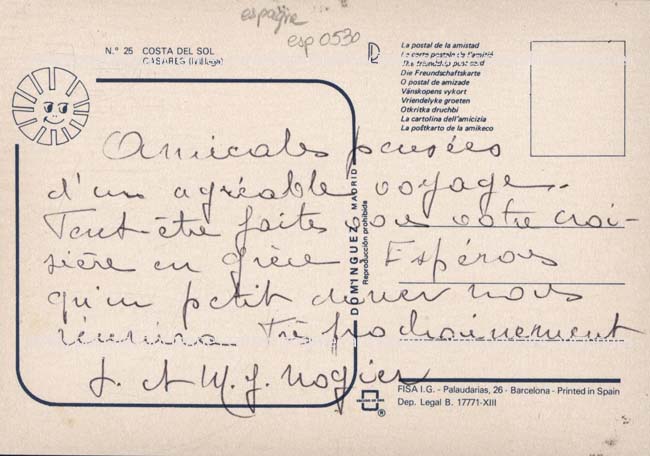 espagne
esp 0530
N.º 25 COSTA DEL SOL
CASARES (Málaga)
La postal de la amistad
La carte postale de l'amitié
The friendship post card
Die Freundschaftskarte
O postal de amizade
Vänskopens vykort
Vriendelyke groeten
Otkritka druchbi
La cartolina dell'amicizia
La poŝtkarto de la amikeco
Amicales pensées
d'un agréable voyage.
Peut-être faites vous votre croi-
sière en grèce Espérons
qu'un petit diner nous
réunira très prochainement
J. et M. J. Nogier
DOMINGUEZ MADRID
Reproducción prohibida
FISA I.G. - Palaudarias, 26 - Barcelona - Printed in Spain
Dep. Legal B. 17771-XIII